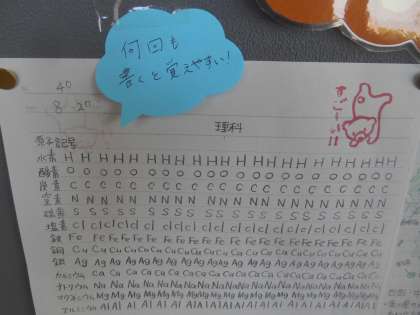 何回も
書くと覚えやすい!
理科
すごーい!!
原子記号
水素 H H H H H H H H H H H H H H H H H H H H H
酸素 O O O O O O O O O O O O O O O O O O O O
炭素 C C C C C C C C C C C C C C C C C C
窒素 N N N N N N N N N N N N N N N N N N N
硫黄 S S S S S S S S S S S S S S S S S S S
塩素 Cl Cl Cl Cl Cl Cl Cl Cl Cl Cl Cl Cl Cl Cl Cl Cl
鉄 Fe Fe Fe Fe Fe Fe Fe Fe Fe Fe Fe Fe Fe Fe Fe
銅 Cu Cu Cu Cu Cu Cu Cu Cu Cu Cu Cu Cu Cu Cu Cu
銀 Ag Ag Ag Ag Ag Ag Ag Ag Ag Ag Ag Ag Ag Ag Ag
カルシウム Ca Ca Ca Ca Ca Ca Ca Ca Ca Ca Ca Ca Ca Ca
ナトリウム Na Na Na Na Na Na Na Na Na Na Na Na Na Na
マグネシウム Mg Mg Mg Mg Mg Mg Mg Mg Mg Mg Mg Mg Mg Mg
アルミニウム Al Al Al Al Al Al Al Al Al Al Al Al Al Al